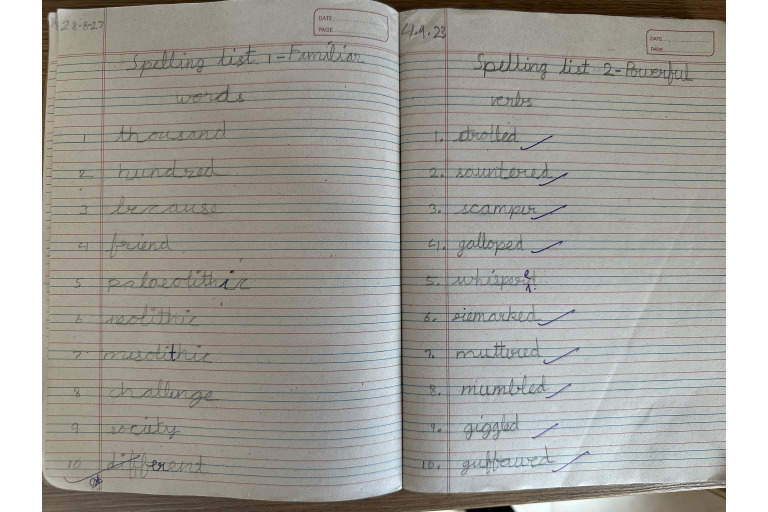 28-8-23
DATE
PAGE
Spelling list 1 - Familiar
words
1 thousand
2. hundred
3 because
4 friend
5 palaeolithic
6 neolithic
7. mesolithic
8 challenge
9 society
10 different
4.9.23
DATE
PAGE
Spelling list 2 - Powerful
verbs
1. strolled
2. sauntered
3. scamper
4. galloped
5.
6. remarked
7. muttered
8. mumbled
9. giggled
10. guffawed